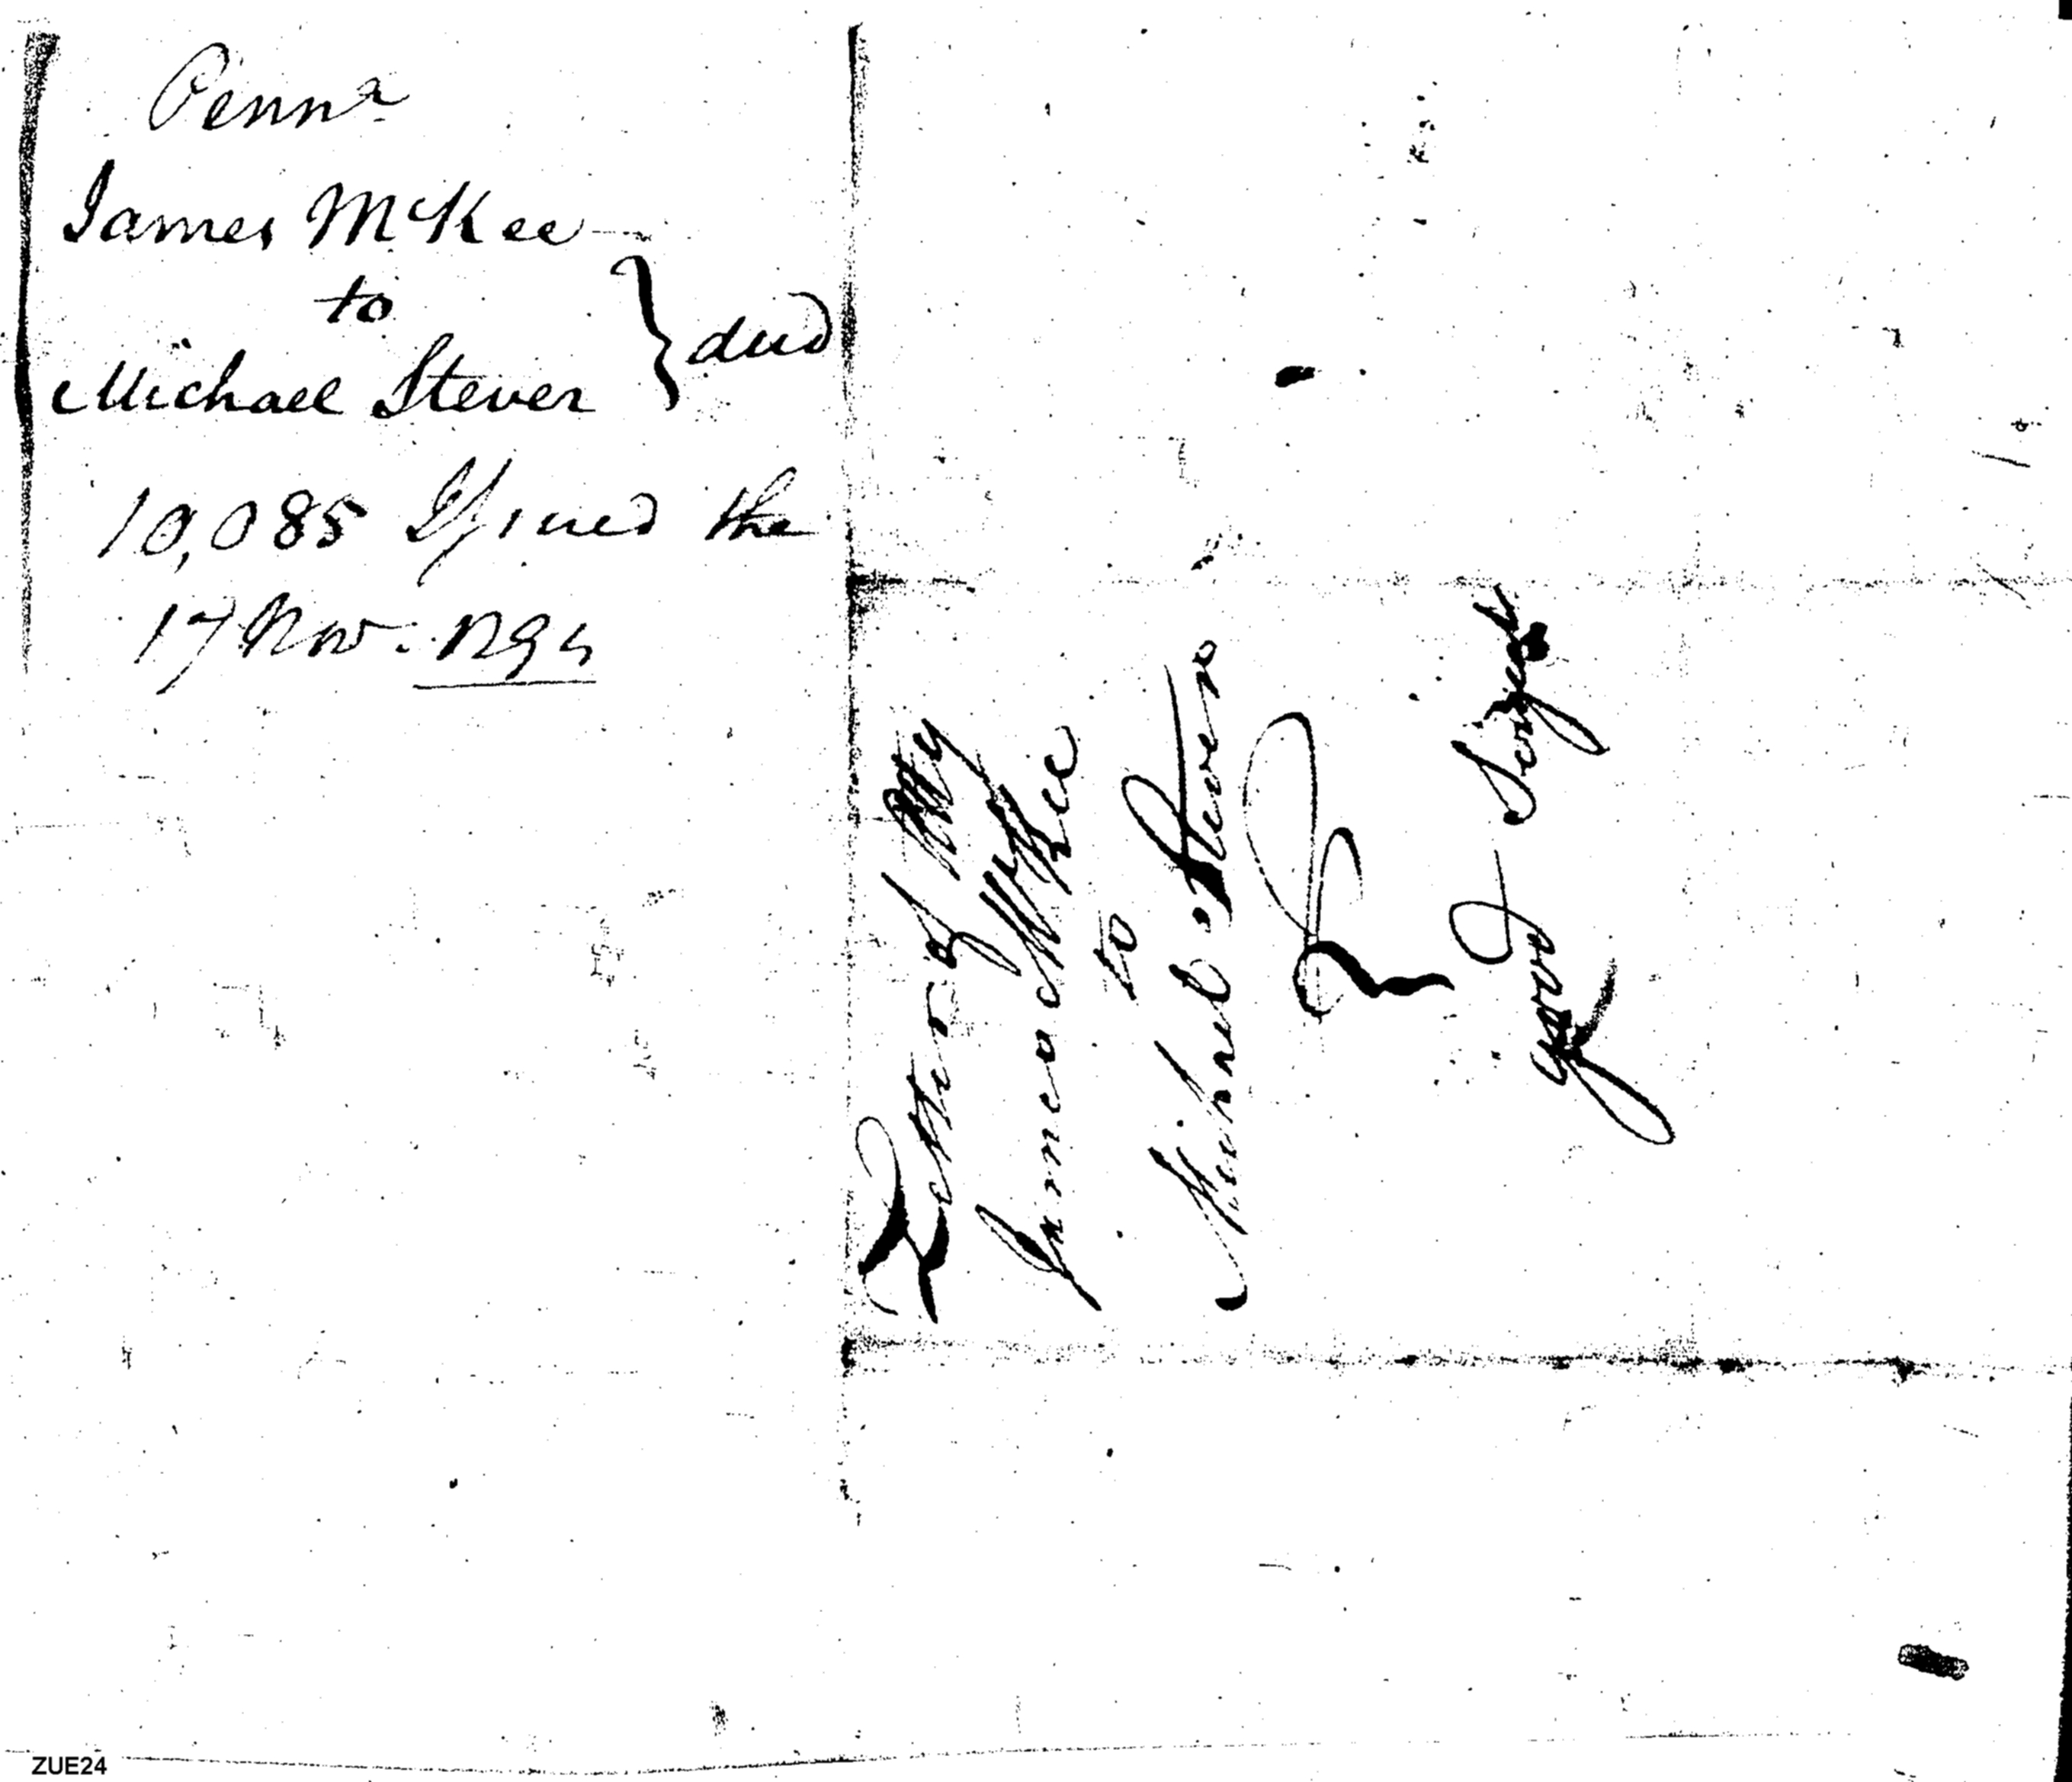 Penna
James McKee
to
Michael Stever } deed
10,085 Issued the
17 Nov. 1794
Letter of Atty
James McKee
to
Michael Stever
ZUE24